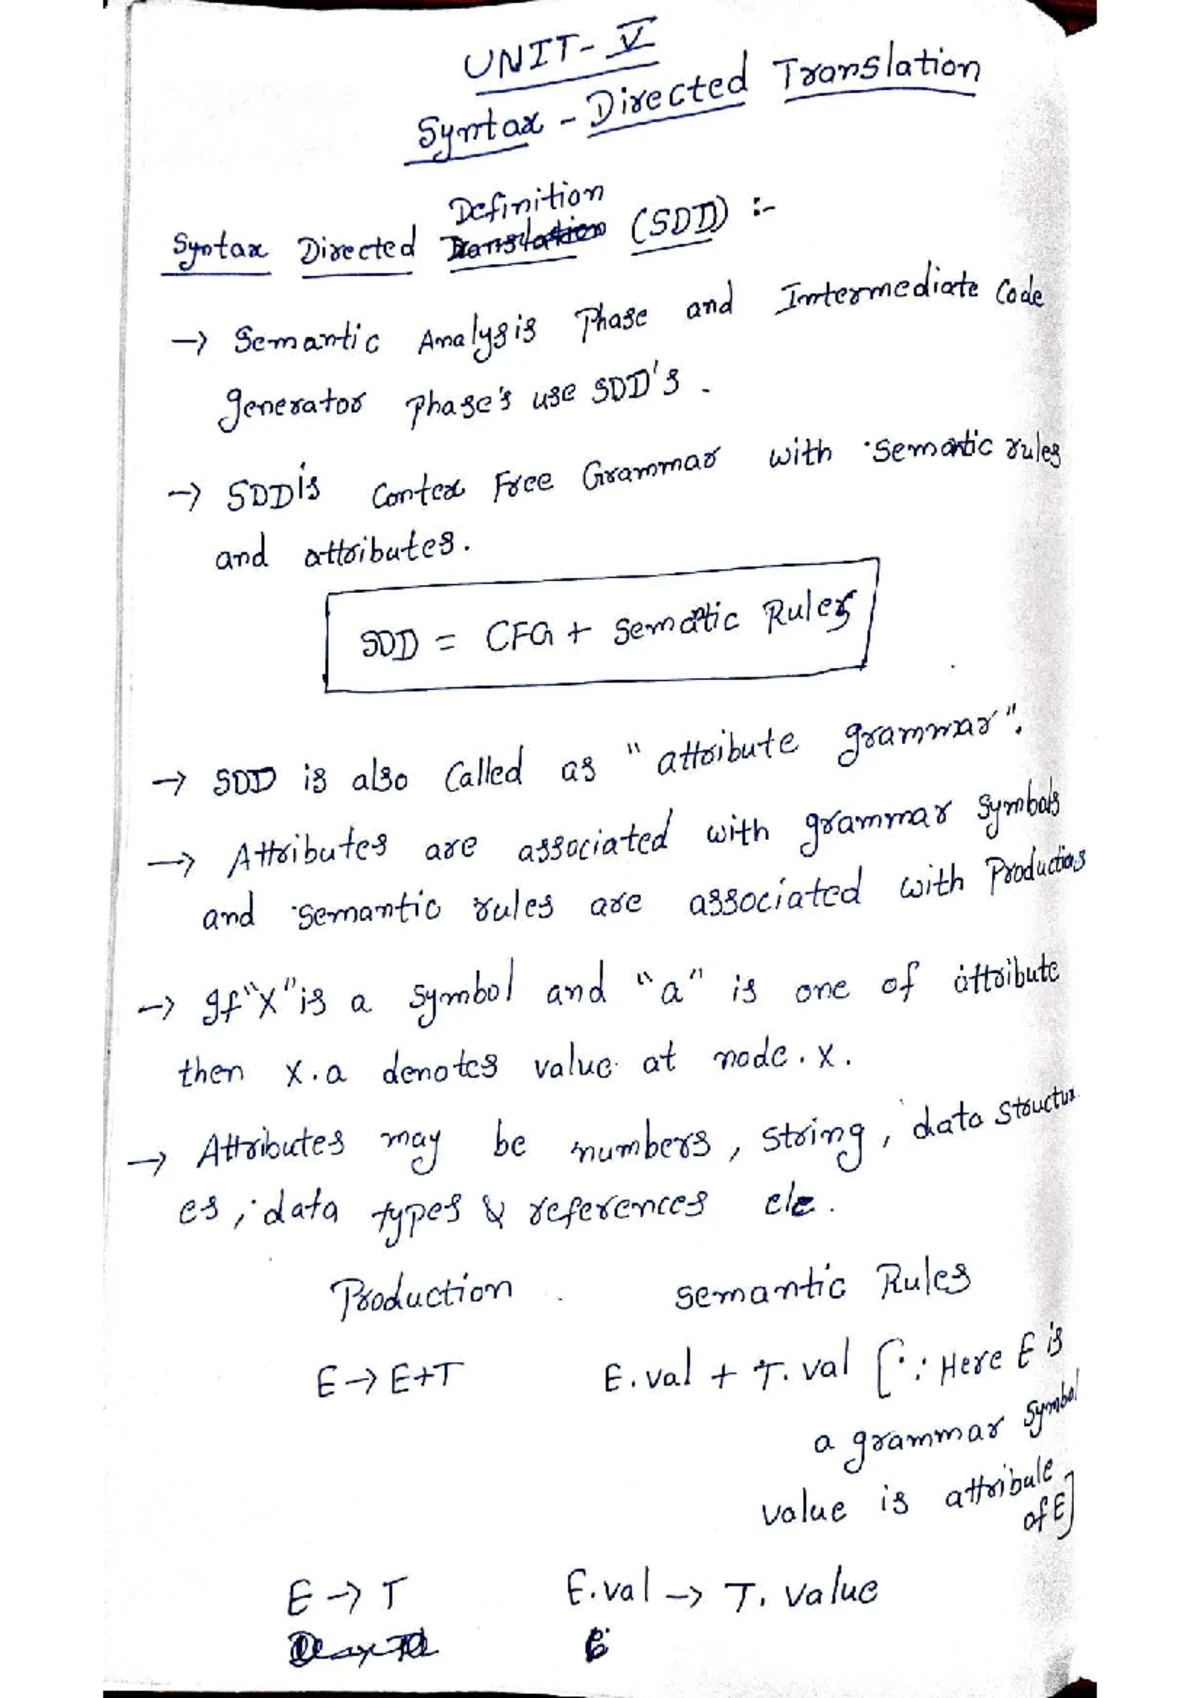 UNIT-V
Syntax - Directed Translation
Definition
Syntax Directed Translation (SDD) :-
→ Semantic Analysis Phase and Intermediate Code
generator Phase's use SDD's.
→ SDD is Contex Free Grammar with semantic rules
and attributes.
SDD = CFG + Sematic Rules
→ SDD is also Called as "attribute grammar".
→ Attributes are associated with grammar Symbols
and semantic rules are associated with Productions
→ If "X" is a Symbol and "a" is one of attribute
then X.a denotes value at node.X.
→ Attributes may be numbers, String, data Structur
es, data types & references etc.
Production Semantic Rules
E → E+T E.val + T.val [∵ Here E is
a grammar Symbol
value is attribute
of E]
E → T E.val → T.value